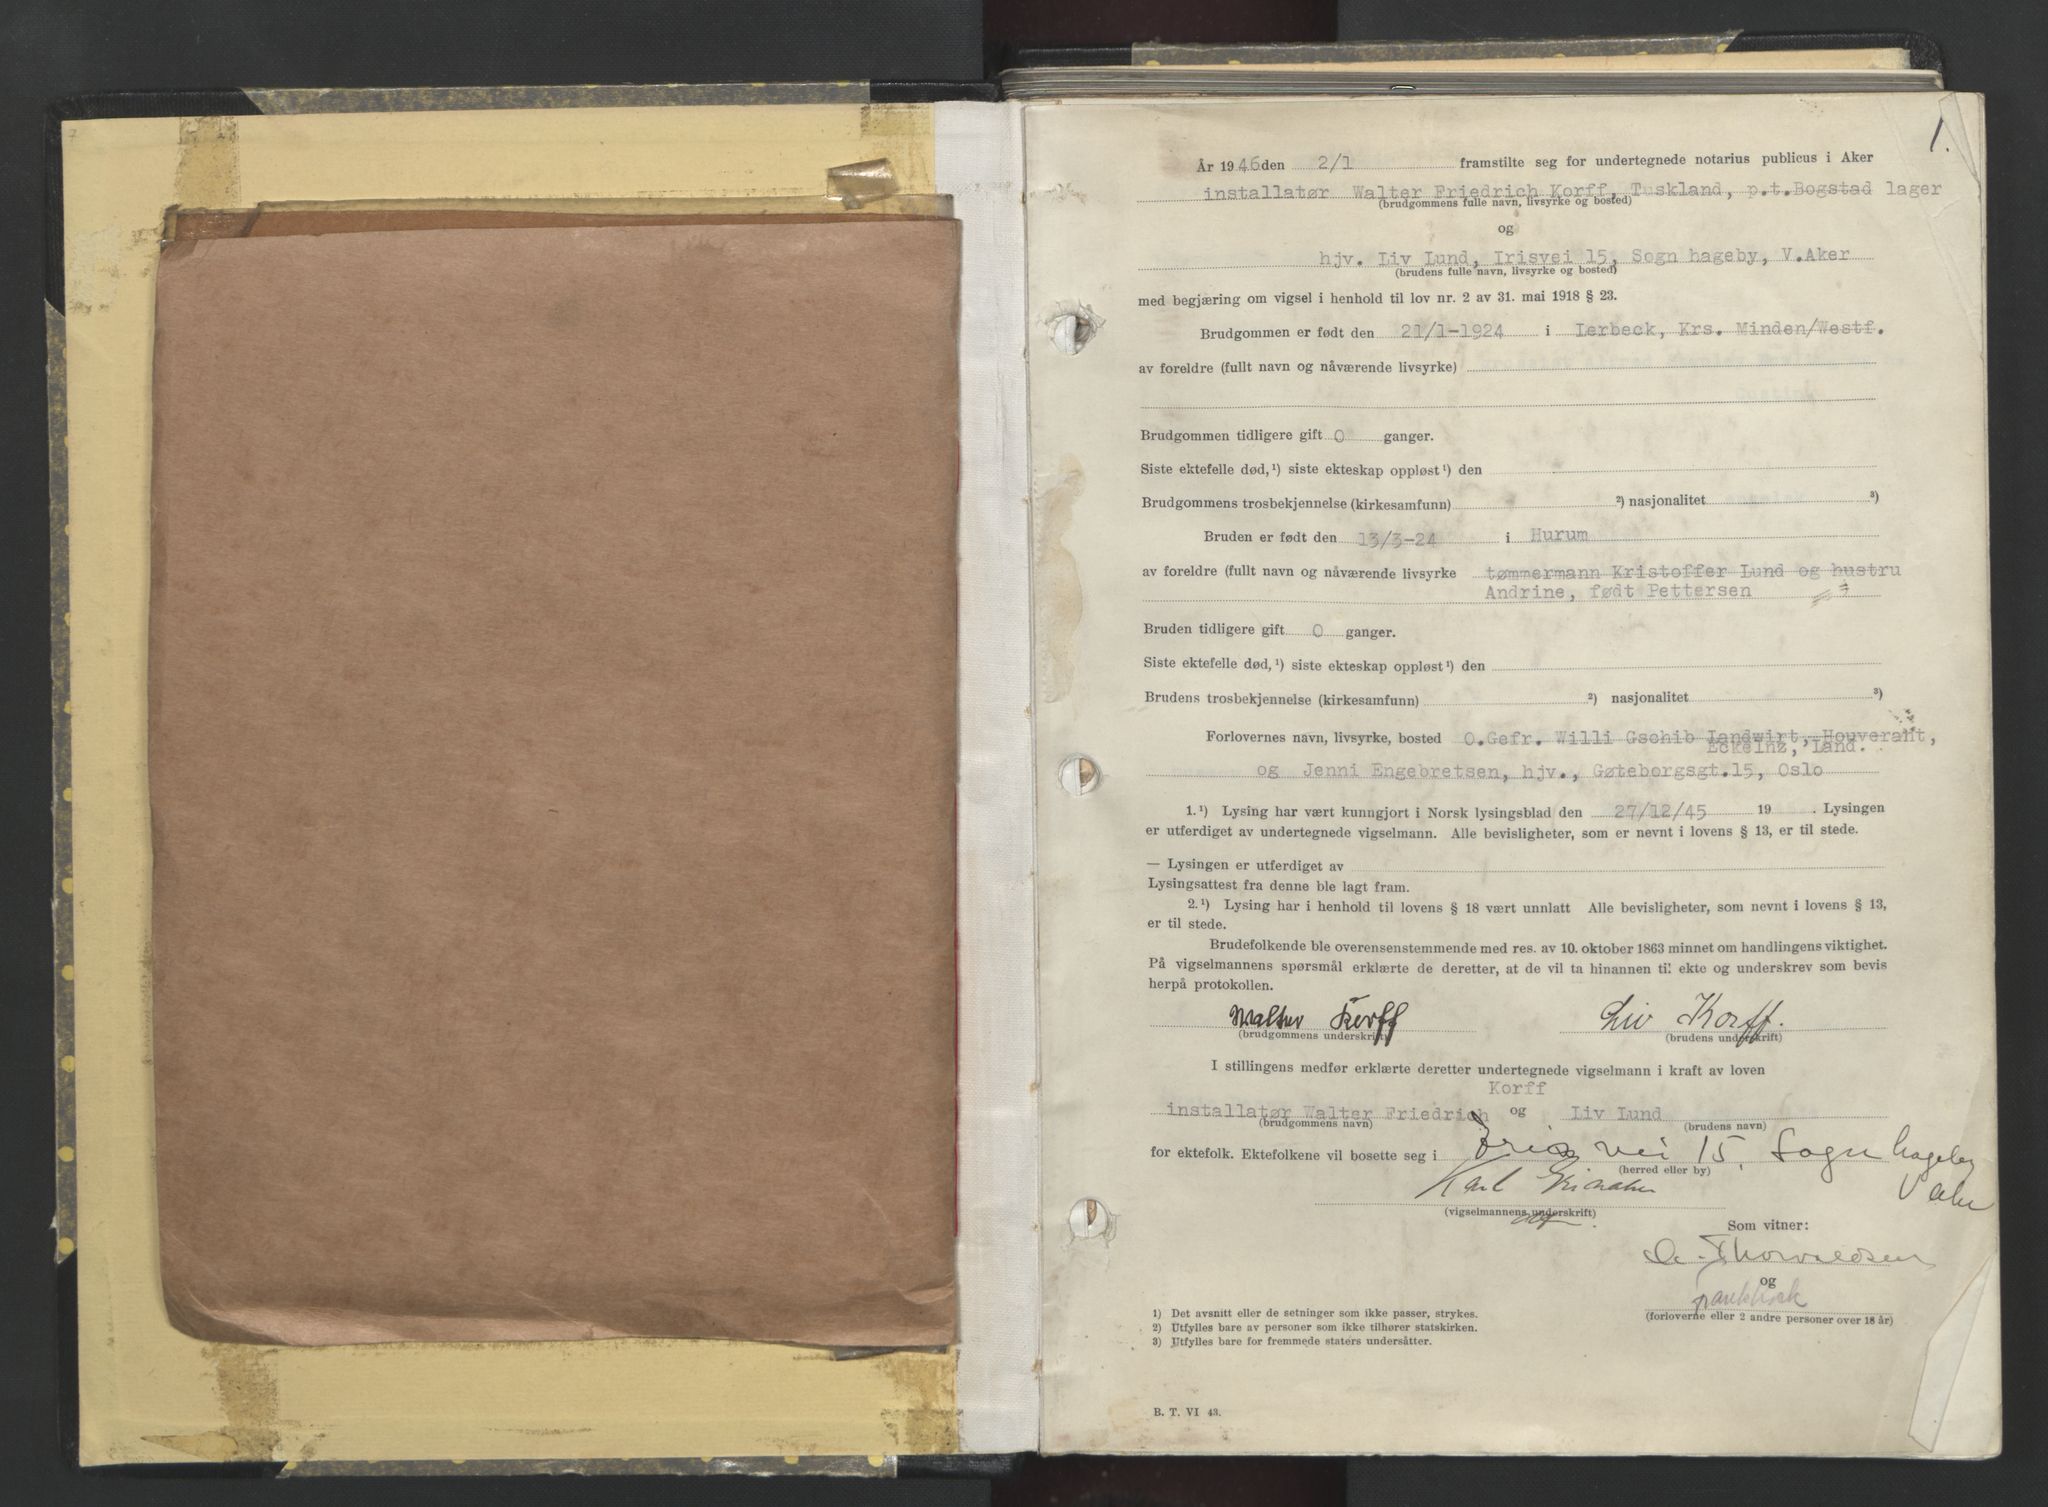 1.
År 1946 den 2/1 framstilte seg for undertegnede notarius publicus i Aker
installatør Walter Friedrich Korff, Tuskland, p.t.Bogstad lager
(brudgommens fulle navn, livsyrke og bosted)
og
hjv. Liv Lund, Irisvei 15, Sogn hageby, V.Aker
(brudens fulle navn, livsyrke og bosted)
med begjæring om vigsel i henhold til lov nr. 2 av 31. mai 1918 § 23.
Brudgommen er født den 21/1-1924 i Lerbeck, Krs. Minden/Westf.
av foreldre (fullt navn og nåværende livsyrke)
Brudgommen tidligere gift 0 ganger.
Siste ektefelle død,¹) siste ekteskap oppløst¹) den
Brudgommens trosbekjennelse (kirkesamfunn) ²) nasjonalitet ³)
Bruden er født den 13/3-24 i Hurum
av foreldre (fullt navn og nåværende livsyrke tømmermann Kristoffer Lund og hustru
Andrine, født Pettersen
Bruden tidligere gift 0 ganger.
Siste ektefelle død,¹) siste ekteskap oppløst¹) den
Brudens trosbekjennelse (kirkesamfunn) ²) nasjonalitet ³)
Forlovernes navn, livsyrke, bosted O.Gefr. Willi Gschib landwirt, Houverant,
Eckelnz, land.
og Jenni Engebretsen, hjv., Gøteborgsgt.15, Oslo
1.¹) Lysing har vært kunngjort i Norsk lysingsblad den 27/12/45 19 . Lysingen
er utferdiget av undertegnede vigselmann. Alle bevisligheter, som er nevnt i lovens § 13, er til stede.
— Lysingen er utferdiget av
Lysingsattest fra denne ble lagt fram.
2.¹) Lysing har i henhold til lovens § 18 vært unnlatt Alle bevisligheter, som nevnt i lovens § 13,
er til stede.
Brudefolkende ble overensenstemmende med res. av 10. oktober 1863 minnet om handlingens viktighet.
På vigselmannens spørsmål erklærte de deretter, at de vil ta hinannen til ekte og underskrev som bevis
herpå protokollen.
Walter Korff Liv Korff.
(brudgommens underskrift) (brudens underskrift)
I stillingens medfør erklærte deretter undertegnede vigselmann i kraft av loven
Korff
installatør Walter Friedrich og Liv Lund
(brudgommens navn) (brudens navn)
for ektefolk. Ektefolkene vil bosette seg i Iris vei 15, Sogn hageby
(herred eller by)
V Aker
Karl
(vigselmannens underskrift)
Som vitner:
Thorvaldsen
og
(forloverne eller 2 andre personer over 18 år)
1) Det avsnitt eller de setninger som ikke passer, strykes.
2) Utfylles bare av personer som ikke tilhører statskirken.
3) Utfylles bare for fremmede staters undersåtter.
B. T. VI 43.